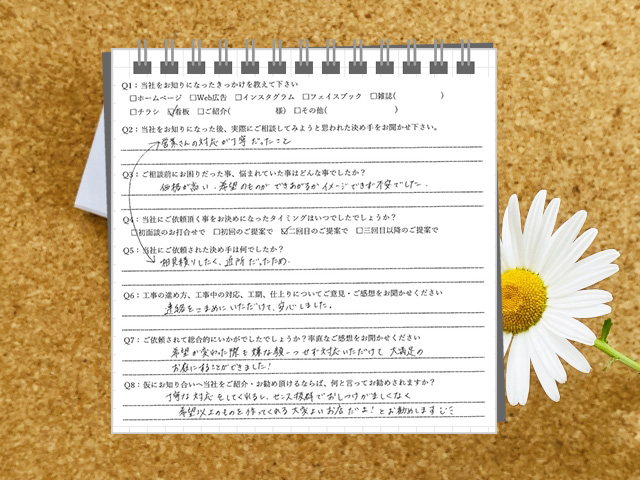 Q1：当社をお知りになったきっかけを教えて下さい
□ホームページ □Web広告 □インスタグラム □フェイスブック □雑誌( )
□チラシ ☑看板 □ご紹介( 様) □その他( )
Q2：当社をお知りになった後、実際にご相談してみようと思われた決め手をお聞かせ下さい。
営業さんの対応が丁寧だったこと
Q3：ご相談前にお困りだった事、悩まれていた事はどんな事でしたか？
価格が高い、希望のものができあがるかイメージできず不安でした。
Q4：当社にご依頼頂く事をお決めになったタイミングはいつでしたでしょうか？
□初面談のお打合せで □初回のご提案で ☑二回目のご提案で □三回目以降のご提案で
Q5：当社にご依頼された決め手は何でしたか？
相見積りしたく、近所だったため。
Q6：工事の進め方、工事中の対応、工期、仕上りについてご意見・ご感想をお聞かせください
連絡をこまめにいただけて、安心しました。
Q7：ご依頼されて総合的にいかがでしたでしょうか？率直なご感想をお聞かせください
希望が変わった際も嫌な顔一つせず対応いただけて 大満足の
お庭にすることができました！
Q8：仮にお知り合いへ当社をご紹介・お勧め頂けるならば、何と言ってお勧めされますか？
丁寧な対応をしてくれるし、センス抜群でおしつけがましくなく
希望以上のものを作ってくれる 大変よいお店だよ！とお勧めします